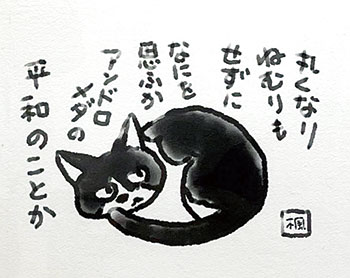 丸くなり
ねむりも
せずに
なにを
思ふか
アンドロ
メダの
平和のことか
楓